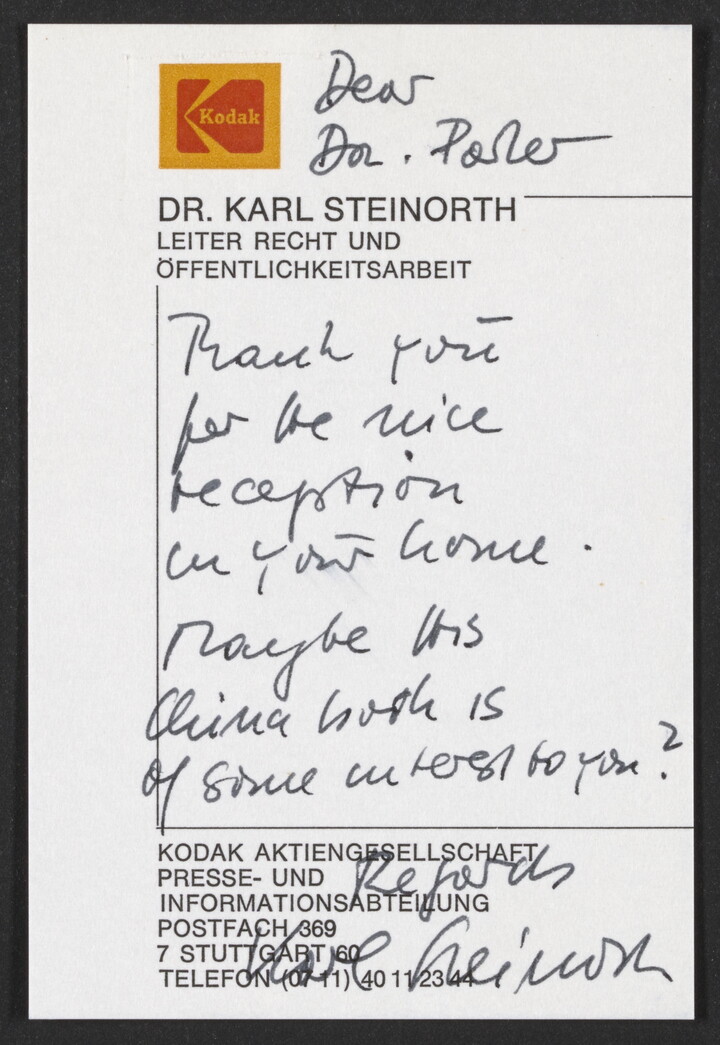 Kodak
Dear
Don. Parker
DR. KARL STEINORTH
LEITER RECHT UND
ÖFFENTLICHKEITSARBEIT
Thank you
for the nice
reception
in your home.
Maybe this
China book is
of some interest to you?
KODAK AKTIENGESELLSCHAFT
Regards
PRESSE- UND
INFORMATIONSABTEILUNG
POSTFACH 369
7 STUTTGART 60
Karl Steinorth
TELEFON (07 11) 40 11/23 44